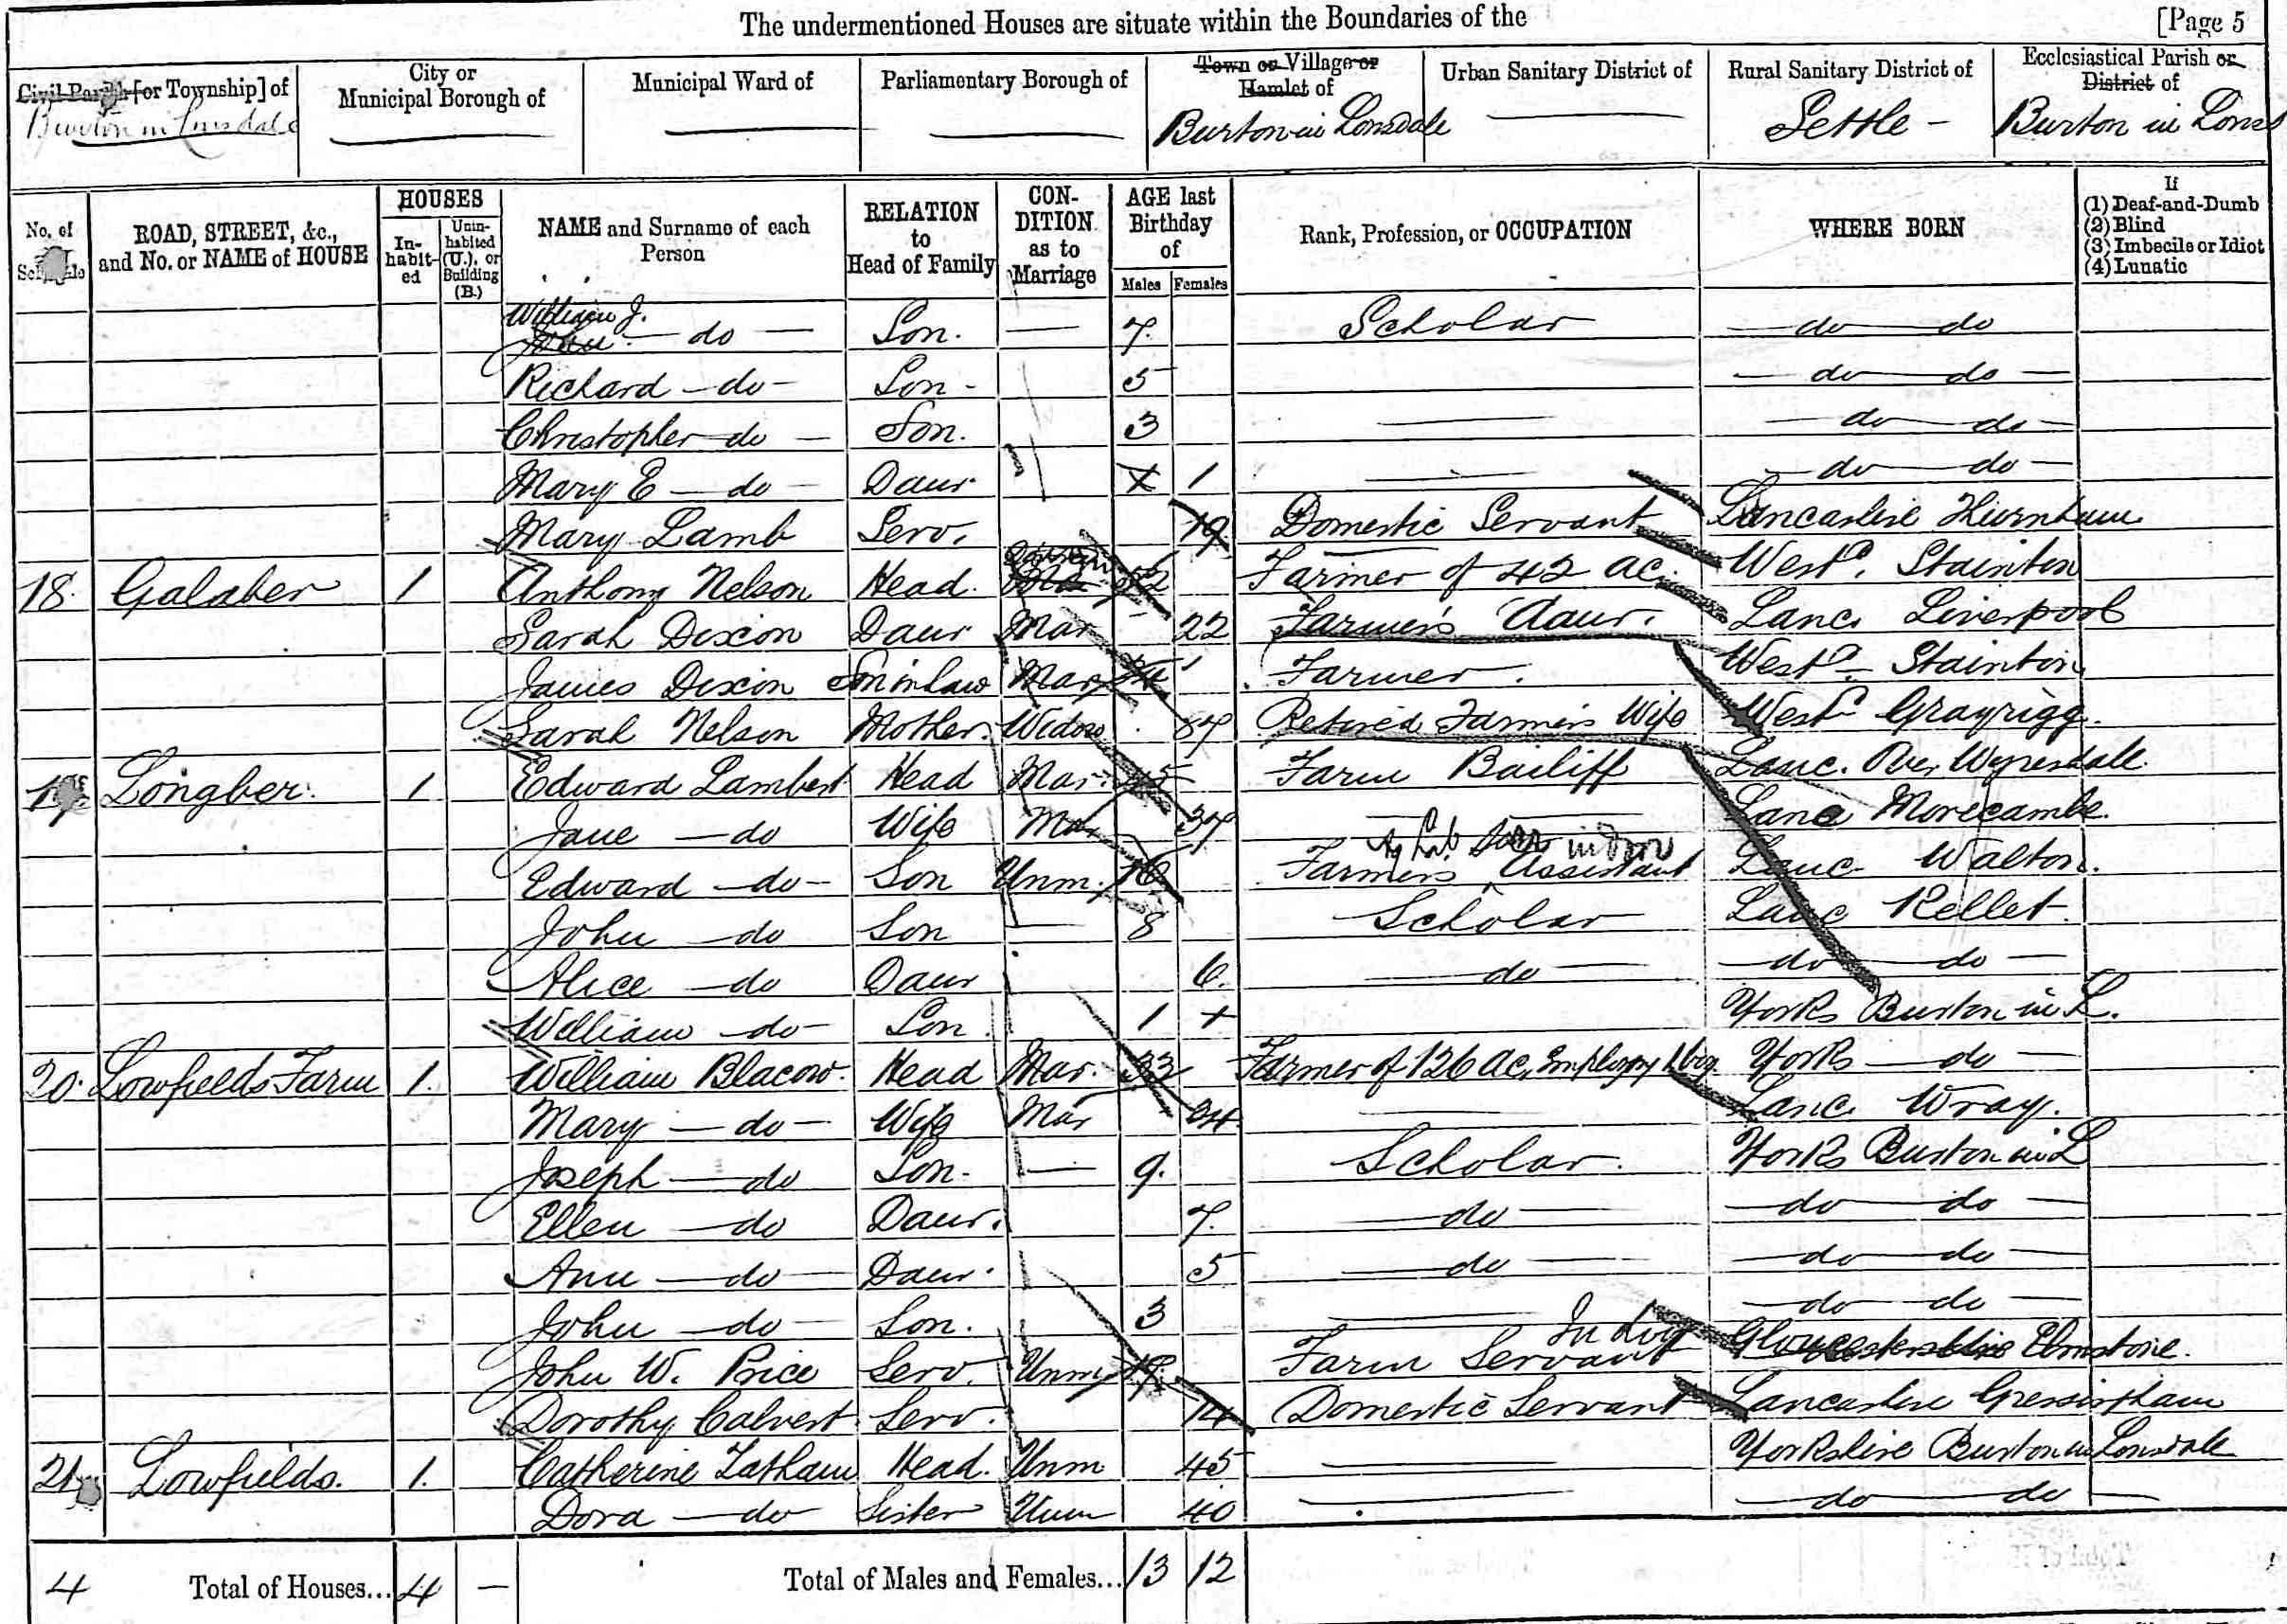 The undermentioned Houses are situate within the Boundaries of the [Page 5
Civil Parish [or Township] of
Burton in Lonsdale
City or Municipal Borough of
Municipal Ward of
Parliamentary Borough of
Town or Village or Hamlet of
Burton in Lonsdale
Urban Sanitary District of
Rural Sanitary District of
Settle -
Ecclesiastical Parish or District of
Burton in Lons
No. of Schedule
ROAD, STREET, &c., and No. or NAME of HOUSE
HOUSES
In-habit-ed
Unin-habited (U.), or Building (B.)
NAME and Surname of each Person
RELATION to Head of Family
CON-DITION as to Marriage
AGE last Birthday of
Males Females
Rank, Profession, or OCCUPATION
WHERE BORN
If
(1) Deaf-and-Dumb
(2) Blind
(3) Imbecile or Idiot
(4) Lunatic
William J. do Son. 7. Scholar do do
Richard do Son 5 do do
Christopher do Son. 3 do do
Mary E do Daur. 1 do do
Mary Lamb Serv. 19 Domestic Servant Lancashire
18. Galaber 1 Anthony Nelson Head. 52 Farmer of 42 ac. Westd. Stainton
Sarah Dixon Daur Mar 22 Farmer's daur. Lanc. Liverpool
James Dixon Son in law Mar Farmer. Westd. Stainton
Sarah Nelson Mother. Widow 87 Retired Farmer's Wife Westd Grayrigg.
19 Longber. 1 Edward Lambert Head Mar. 45 Farm Bailiff Lanc. Over Wyresdale
Jane do Wife Mar 37 Lanc Morecambe.
Ag Lab indoor
Edward do Son Unm. 16 Farmer's Assistant Lanc Walton.
John do Son 8 Scholar Lanc Kellet.
Alice do Daur 6. do do do
William do Son 1 Yorks Burton in L.
20. Lowfields Farm 1. William Blacow. Head Mar. 33 Farmer of 126 ac. Employg 1 boy Yorks do
Mary do Wife Mar 34. Lanc. Wray.
Joseph do Son. 9. Scholar. Yorks Burton in L
Ellen do Daur. 7. do do do
Ann do Daur. 5 do do do
John do Son. 3 do do
John W. Price Serv. Unm Farm Servant Indoor Gloucestershire Elmstone.
Dorothy Calvert Serv. 14 Domestic Servant Lancashire Gressingham
21 Lowfields. 1. Catherine Tatham Head. Unm 45 Yorkshire Burton in Lonsdale
Dora do Sister Unm 40 do do
4 Total of Houses... 4 — Total of Males and Females... 13 12